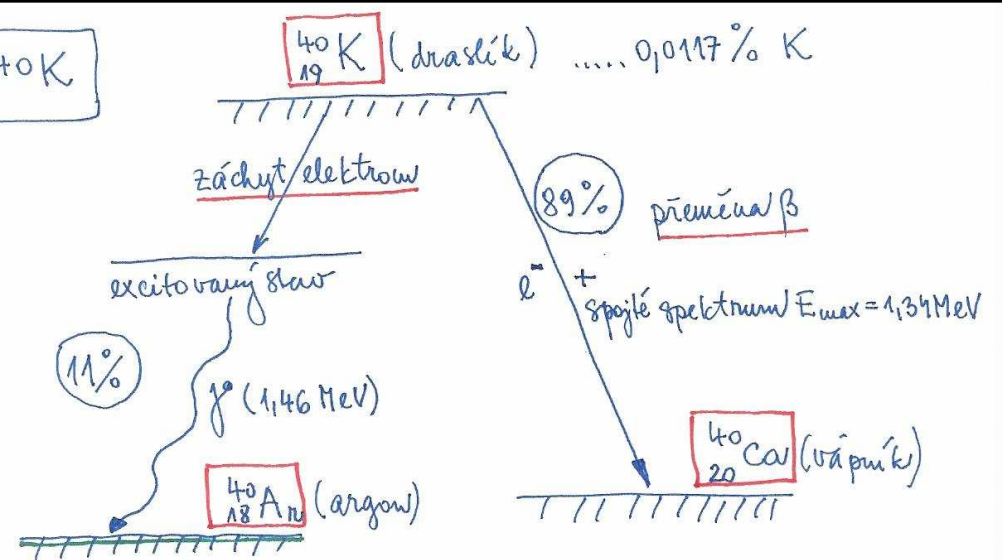 40K
40 19 K (draslík) ..... 0,0117% K
záchyt elektronu
89%
přeměna β
excitovaný stav
e⁻ +
spojité spektrum Emax = 1,34 MeV
11%
γ (1,46 MeV)
40 20 Ca (vápník)
40 18 Ar (argon)